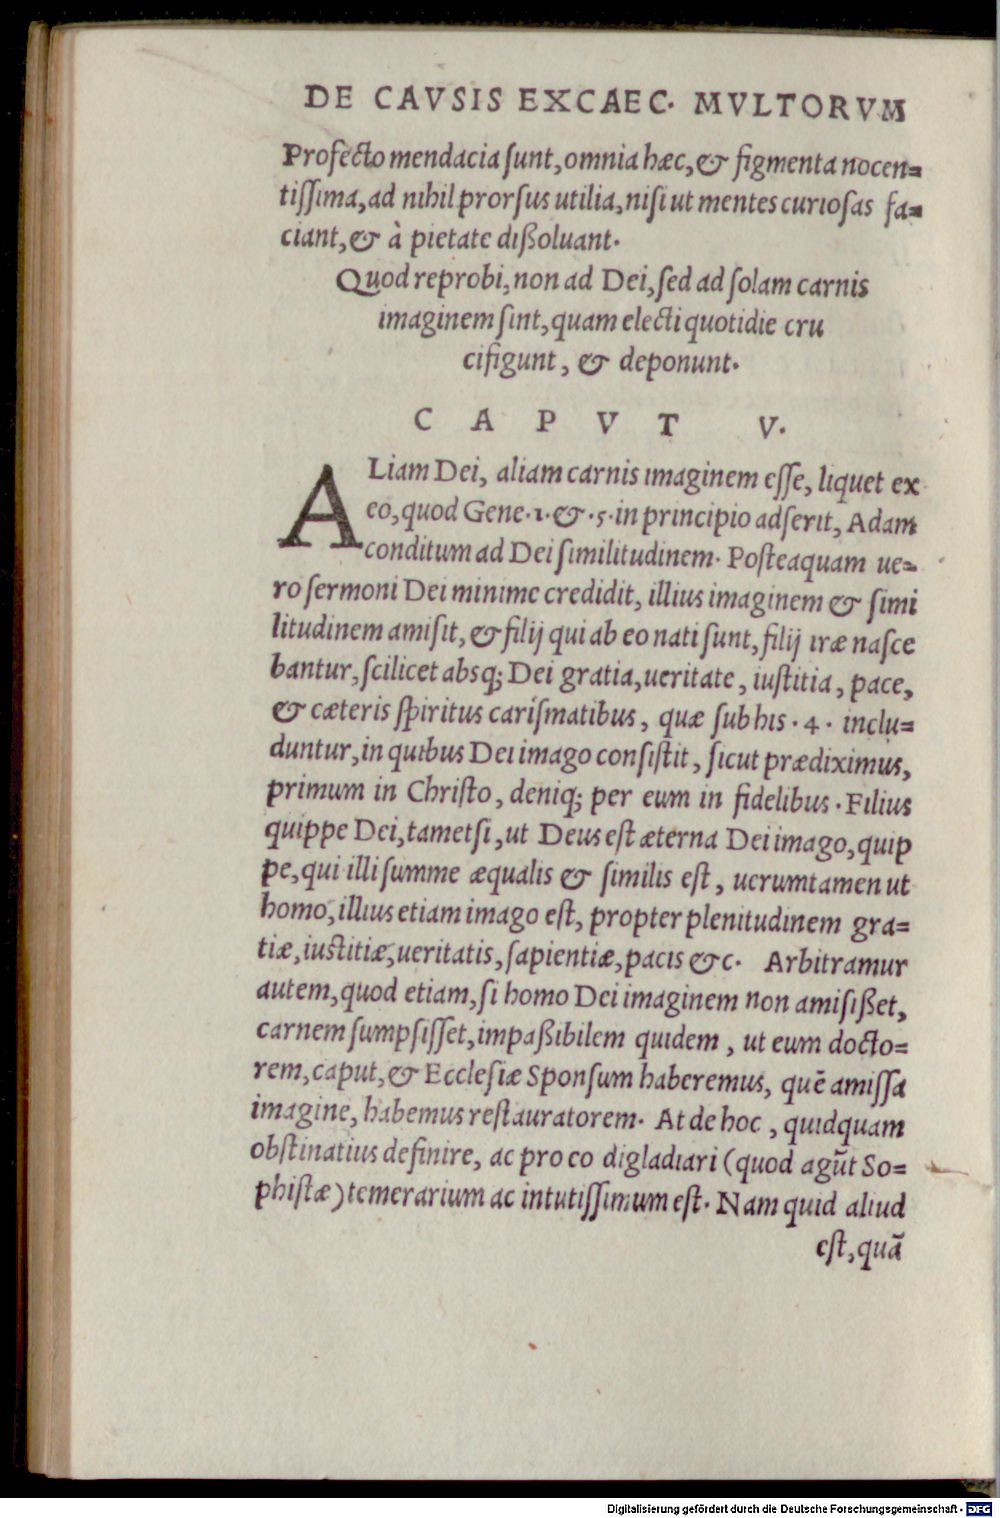 DE CAVSIS EXCAEC. MVLTORVM
Profecto mendacia ſunt, omnia hæc, & figmenta nocen=
tiſſima, ad nihil prorſus utilia, niſi ut mentes curioſas fa=
ciant, & à pietate dißoluant.
Quod reprobi, non ad Dei, ſed ad ſolam carnis
imaginem ſint, quam electi quotidie cru
cifigunt, & deponunt.
CAPVT V.
ALiam Dei, aliam carnis imaginem eſſe, liquet ex
eo, quod Gene.1.&.5.in principio adſerit, Adam
conditum ad Dei ſimilitudinem. Poſteaquam ue=
ro ſermoni Dei minime credidit, illius imaginem & ſimi
litudinem amiſit, & filij qui ab eo nati ſunt, filij iræ naſce
bantur, ſcilicet absq; Dei gratia, ueritate, iuſtitia, pace,
& cæteris ſpiritus cariſmatibus, quæ ſub his .4. inclu=
duntur, in quibus Dei imago conſiſtit, ſicut prædiximus,
primum in Chriſto, deniq; per eum in fidelibus. Filius
quippe Dei, tametſi, ut Deus eſt æterna Dei imago, quip
pe, qui illi ſumme æqualis & ſimilis eſt, uerumtamen ut
homo, illius etiam imago eſt, propter plenitudinem gra=
tiæ, iuſtitiæ, ueritatis, ſapientiæ, pacis &c. Arbitramur
autem, quod etiam, ſi homo Dei imaginem non amiſißet,
carnem ſumpſiſſet, impaßibilem quidem, ut eum docto=
rem, caput, & Eccleſiæ Sponſum haberemus, quē amiſſa
imagine, habemus reſtauratorem. At de hoc, quidquam
obſtinatius definire, ac pro eo digladiari (quod agūt So=
phiſtæ) temerarium ac intutiſſimum eſt. Nam quid aliud
eſt, quā
Digitalisierung gefördert durch die Deutsche Forschungsgemeinschaft - DFG